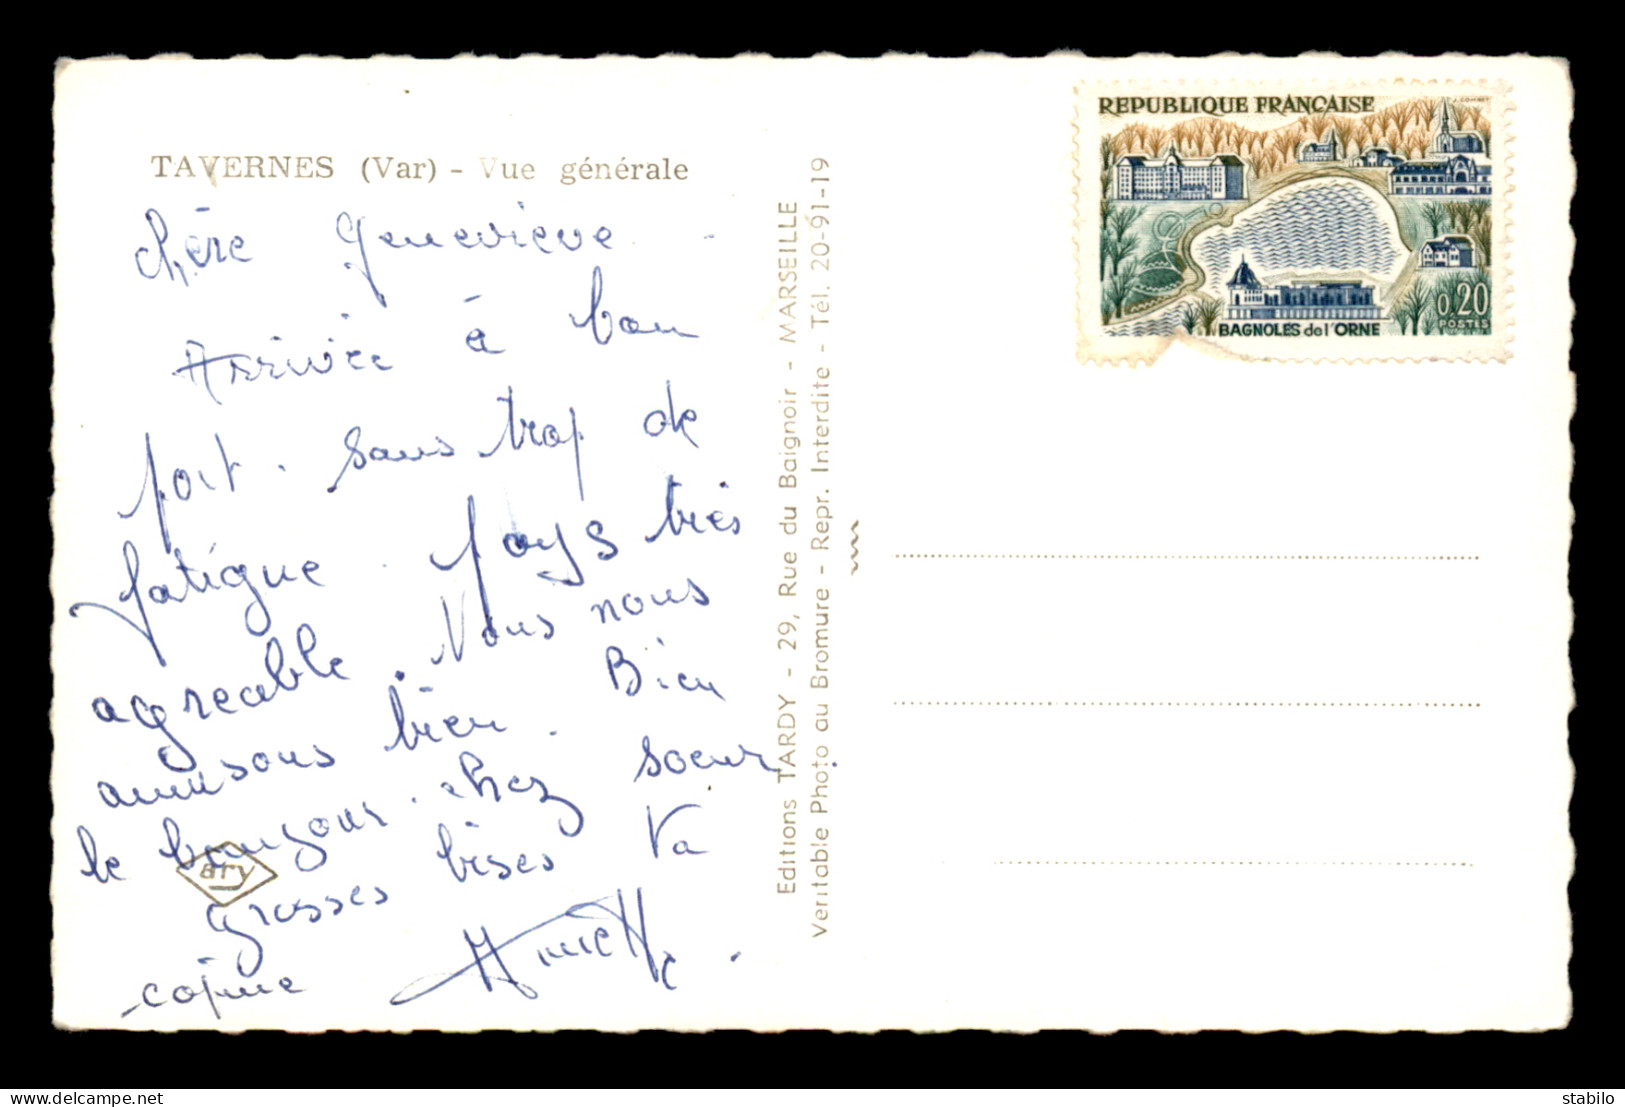 TAVERNES (Var) - Vue générale
chère Genevieve
Arrivée à bon
port. sans trop de
fatigue. pays très
agreable. Nous nous
amusons bien. Bien
le bonjour. chez soeur
grosses bises Ta
copine Annette.
ary
Editions TARDY - 29, Rue du Baignoir - MARSEILLE
Veritable Photo au Bromure - Repr. Interdite - Tél. 20-91-19
REPUBLIQUE FRANÇAISE
0,20
POSTES
BAGNOLES de l'ORNE
https://www.delcampe.net
stabilo